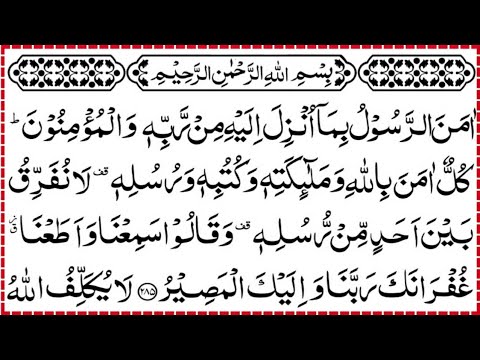 بِسْمِ اللهِ الرَّحْمٰنِ الرَّحِيْمِ
اٰمَنَ الرَّسُوْلُ بِمَاۤ اُنْزِلَ اِلَيْهِ مِنْ رَّبِّهٖ وَالْمُؤْمِنُوْنَ ؕ
كُلٌّ اٰمَنَ بِاللهِ وَمَلٰٓئِكَتِهٖ وَكُتُبِهٖ وَرُسُلِهٖ قف لَا نُفَرِّقُ
بَيْنَ اَحَدٍ مِّنْ رُّسُلِهٖ قف وَقَالُوْا سَمِعْنَا وَاَطَعْنَا
غُفْرَانَكَ رَبَّنَا وَاِلَيْكَ الْمَصِيْرُ ﴿۲۸۵﴾ لَا يُكَلِّفُ اللهُ